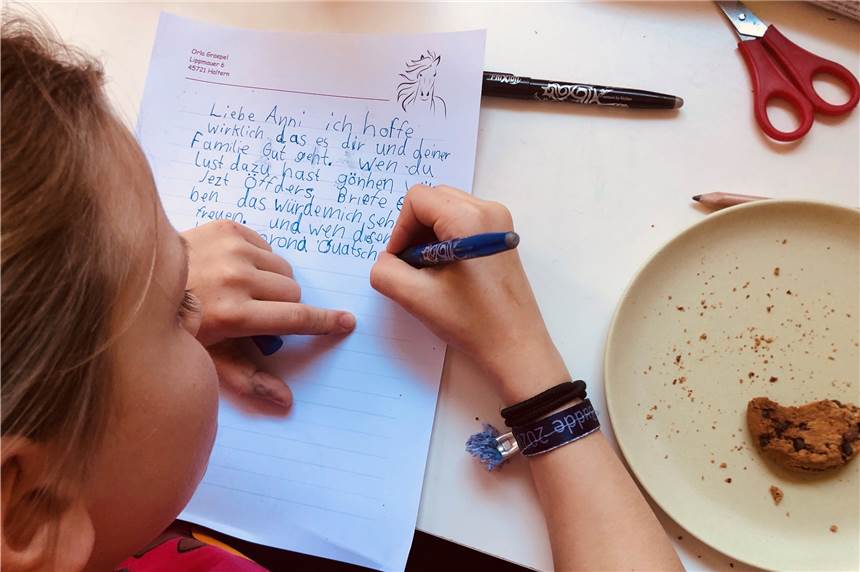 Orla Graepel
Lippmauer 6
45721 Haltern
Liebe Anni ich hoffe
wirklich das es dir und deiner
Familie Gut geht. Wen du
lust dazu hast gönnen
Jezt Öffders, Briefe
ben das würdemich seh
freuen. und wen diser
orona Quatsch
FriXion